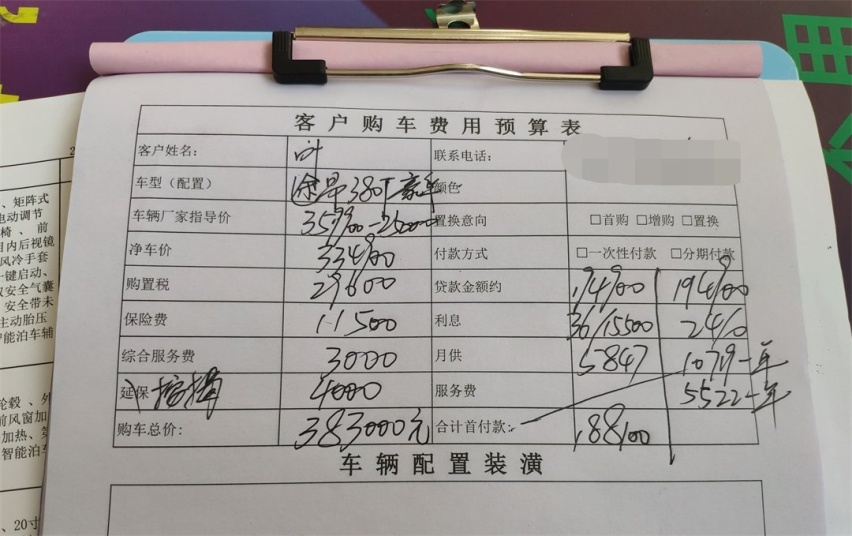 客户购车费用预算表
客户姓名: 叶 联系电话:
车型（配置） 途昂380T豪华 颜色
车辆厂家指导价 359900-25000 置换意向 □首购 □增购 □置换
净车价 334900 付款方式 □一次性付款 □分期付款
购置税 29600 贷款金额约 194900 194900
保险费 11500 利息 36/15500 24/0
综合服务费 3000 月供 5847 10719-年
延保 4000 服务费 5522-年
购车总价: 383000元 合计首付款: 188100
车辆配置装潢
、矩阵式
电动调节
椅、前
目内后视镜
风冷手套
一键启动、
安全气囊
安全带未
主动胎压
智能泊车辅
轮毂、外
前风窗加
加热、第
智能泊车
、20寸